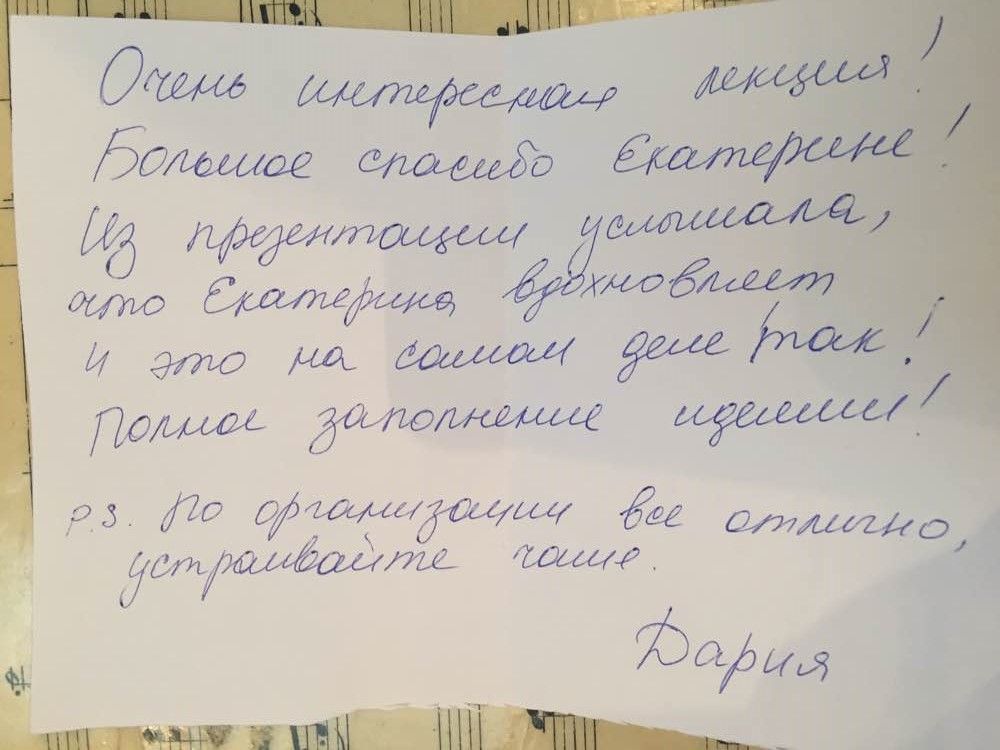 Очень интересная лекция!
Большое спасибо Екатерине!
Из презентации услышала,
что Екатерина вдохновляет
и это на самом деле так!
Полное заполнение идеями!
P.S. По организации все отлично,
устраивайте чаще.
Дария